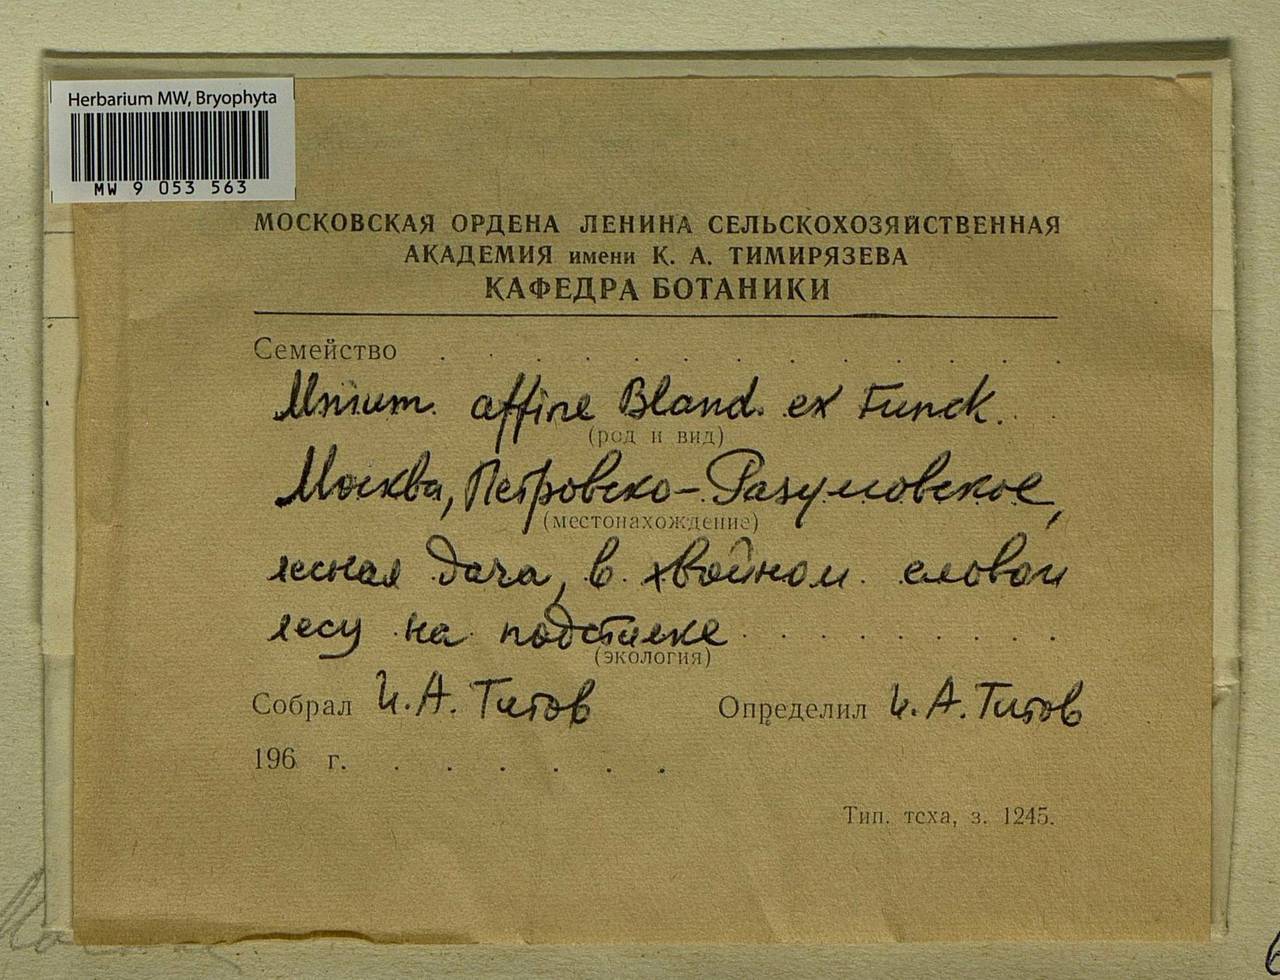 Herbarium MW, Bryophyta
MW 9 053 563
МОСКОВСКАЯ ОРДЕНА ЛЕНИНА СЕЛЬСКОХОЗЯЙСТВЕННАЯ
АКАДЕМИЯ имени К. А. ТИМИРЯЗЕВА
КАФЕДРА БОТАНИКИ
Семейство
Mnium affine Bland. ex Funck.
(род и вид)
Москва, Петровско-Разумовское,
(местонахождение)
лесная дача, в хвойном еловом
лесу на подстилке
(экология)
Собрал И. А. Титов Определил И. А. Титов
196 г.
Тип. тсха, з. 1245.